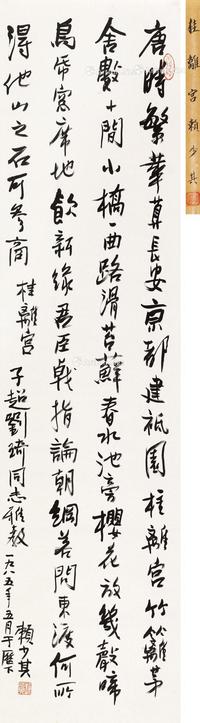 唐時繁華算長安京都建祗園桂離宮竹籬茅
舍數十間小橋一曲路滑苔蘚春水池旁櫻花放幾聲啼
鳥帘窗席地飲新綠君臣戟指論朝綱若問東渡何所
得他山之石可參商
桂離宮
子超劉琦同志雅教
一九八五年五月于歷下
賴少其
桂離宮賴少其